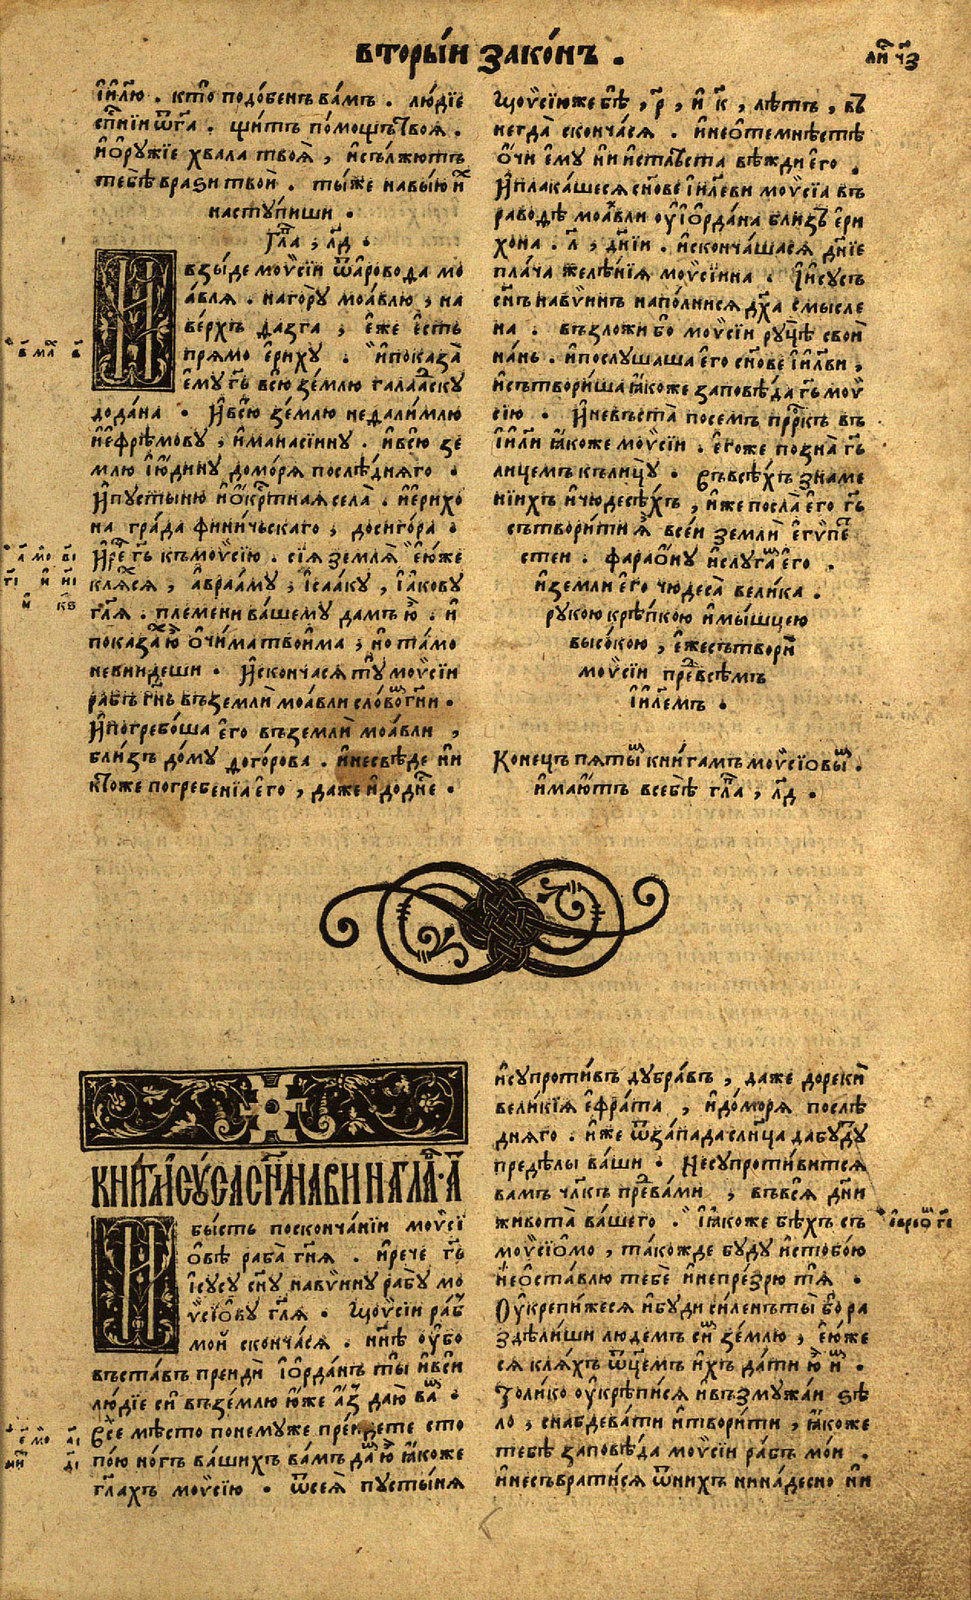 вторы́и зако́нъ .
ли҃ ч҃з
і҆и҃лю . кто̀ подо́бенъ ва́мъ . лю́дїе
сп҃нїи ѿг҃а . щи́тъ по́мощъ твоѧ̀ .
и҆ѻ҆ру́жїе хвала твоѧ̀ , и҆съл́жютъ
тебѣ̀ врази твоѝ . ты́же навы́ю и҆х
насту́пиши .
гла҃ , л҃д .
И взы́де мовѵ̈сїи ѿа҆рово да мо
а́влѧ . нагорꙋ̀ моа́влю , на
ве́рхъ даѕга , е҆́же е҆́сть
прѧ́мо е҆ри́хꙋ . и҆показа̀
е҆мꙋ̀ г҃ь всю̀ зе́млю галаа́скꙋ
дода́на . И҆всю̀ зе́млю недалимлю
и҆е҆фре́мовꙋ , и҆манасїинꙋ . и҆всю̀ зе
млю і҆ю́динꙋ домо́рѧ послѣ́днѧго .
И҆пꙋстыню и҆ѻ҆кр҃тнаѧ села̀ . и҆е҆рихо
на гра́да фини́чьскаго , досиго́ра .
И҆рече г҃ь къмовѵ̈сїю . сїѧ землѧ̀ е҆ю́же
клѧ́хсѧ , а҆враамꙋ , і҆саакꙋ , і҆а́ковꙋ
гл҃ѧ . племени ва́шемꙋ дамъ ю҆̀ . и҆
показа́х ю҆̀ ѻ҆чима твои́ма , и҆ та́мо
невни́деши . И҆сконча́сѧ тꙋ̀ мовѵ̈сїи
рабъ гн҃ь въземлѝ моа́вли сло́во гн҃и .
И҆погребо́ша е҆го̀ въземлѝ моа́вли ,
бли́зъ до́мꙋ догорова . и҆несвѣде ни
кто́же погребенїѧ е҆го̀ , да́же и҆доднѐ .
Цмовѵ̈сїиже бѣ̀ , р҃ , и҆ к҃ , лѣ́тъ , въ
негда̀ сконча́сѧ . и҆неѻ҆темнѣ́стѣ
ѻ҆чи е҆мꙋ̀ ни и҆стлѣ́ста вѣ́жди е҆го̀ .
И҆плака́шесѧ сн҃ове і҆и҃леви мовѵ̈сїа въ
раводѣ моа́вли ꙋ҆і҆ѻ҆рда́на близъ е҆ри
хона . л҃ , днїи . и҆сконча́шасѧ дн҃їе
пла́ча желѣ́нїѧ мовѵ̈сїина . І҆исꙋсъ
сн҃ъ навѵ́инъ напо́лнисѧ дꙋ҃ха смысле
на . възложѝ бо мовѵ̈сїи рꙋ́цѣ своѝ
на́нь . и҆послꙋшаша е҆го̀ сн҃ове і҆и҃лви ,
и҆сътвори́ша ꙗ҆́коже заповѣ́да г҃ь мов
сїю . И҆невъста̀ посемъ прр҃къ въ
і҆и҃ли ꙗ҆́коже мовѵ̈сїи . е҆го́же позна̀ г҃ь
лицемъ къли́цꙋ . Съвсѣ́хъ знаме
нїихъ и҆чюдесѣ́хъ , и҆же посла̀ е҆го̀ г҃ь
сътвори́ти ѧ҆̀ всеи землѝ е҆гѵ́пе
стеи . фараѻ́нꙋ и҆слꙋга́м е҆го̀ .
и҆земли е҆го̀ чюдеса̀ велика .
рꙋкою крѣ́пкою и҆мы́шцею
высо́кою , е҆́жесътворѝ
мовѵ̈сїи пре́двсѣмъ
і҆и҃лемъ .
Конецъ пя́тым кни́гамъ мовѵ̈сїовым .
и҆мают́ъ всебѣ̀ гла҃ , л҃д .
КНИГА І҆СꙊСА СН҃А НАВИНА ГЛА҃ . А҃
И бы́сть посконча́нїи мовѵ̈сї
о́вѣ раба̀ гн҃ѧ . и҆рече г҃ь
І҆сꙋсꙋ сн҃ꙋ навѵ́инꙋ рабꙋ̀ мо
вѵ̈сїѻвꙋ гл҃ѧ . Цмовѵ̈сїи ра́б
мо́и сконча́сѧ . нн҃ѣ ꙋ҆бо
въста́въ преидѝ і҆ѻ҆рда́нъ ты̀ и҆всѝ
лю́дїе сѝ въземлю ю҆́же а҆́з даю̀ ва́м .
Все мѣ́сто понемꙋже преи́дете сто
по́ю но́гъ ва́шихъ ва́мъ да́м ю҆̀ ꙗ҆́коже
гл҃ахъ мовѵ̈сїю . ѿсеѧ̀ пꙋсты́нѧ
и҆сꙋпроти́въ дꙋбра́въ , да́же дорекѝ
вели́кїѧ е҆фра́та , и҆до́морѧ послѣ
днѧго . и҆же ѿза́пада сл҃нца да бꙋ́дꙋ
предѣ́лы ва́ши . Несꙋпроти́витсѧ
ва́мъ чл҃къ пре́два́ми , въвсѧ̀ дн҃и
живота̀ ва́шего . ꙗ҆́коже бѣ́хъ съ
мовѵ̈сїѻмо , та́кожде бꙋ́дꙋ и҆стобо́ю
неѻ҆ста́влю тебѐ и҆непре́зрю тѧ̀ .
Оу҆крепи́жесѧ и҆бꙋди си́ленъ ты̀ бо ра
здѣли́ши лю́демъ сїю̀ зе́млю , е҆ю́же
сѧ клѧ́хъ ѿц҃емъ и҆́хъ да́ти ю҆̀ и҆м .
То́лико ꙋ҆крѣпи́сѧ и҆възмꙋжа́и ѕѣ
ло , снабдева́ти и҆твори́ти , ꙗ҆́коже
тебѣ̀ заповѣ́да мовѵ̈сїи ра́бъ мо́и .
и҆несъврати́сѧ ѿни́хъ нина́десно ни